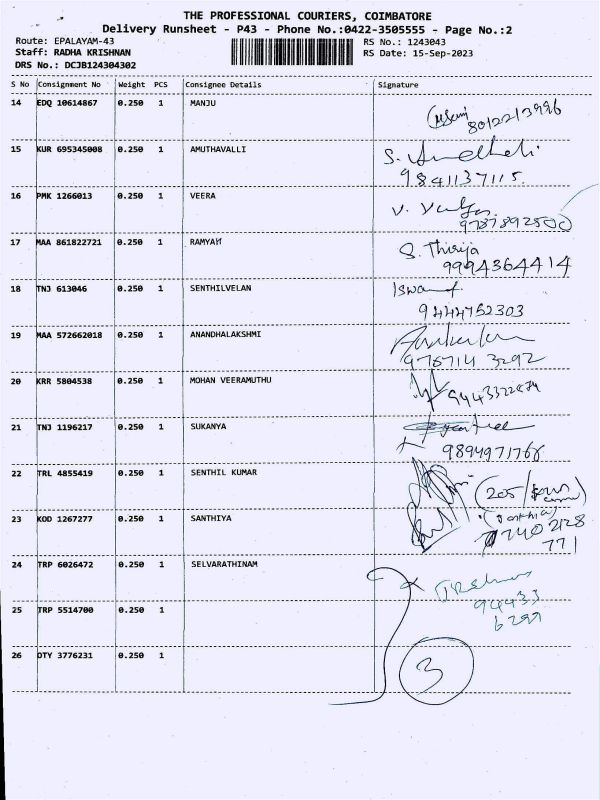 THE PROFESSIONAL COURIERS, COIMBATORE
Delivery Runsheet - P43 - Phone No.:0422-3505555 - Page No.:2
Route: EPALAYAM-43 RS No.: 1243043
Staff: RADHA KRISHNAN RS Date: 15-Sep-2023
DRS No.: DCJB124304302
S No Consignment No Weight PCS Consignee Details Signature
14 EDQ 10614867 0.250 1 MANJU
8012213996
15 KUR 695345008 0.250 1 AMUTHAVALLI S.
9841137115.
16 PMK 1266013 0.250 1 VEERA V.
9787892500
17 MAA 861822721 0.250 1 RAMYAH S. Thirija
9994364414
18 TNJ 613046 0.250 1 SENTHILVELAN
9444752303
19 MAA 572662018 0.250 1 ANANDHALAKSHMI
978714 3292
20 KRR 5804538 0.250 1 MOHAN VEERAMUTHU
21 TNJ 1196217 0.250 1 SUKANYA
9894971766
22 TRL 4855419 0.250 1 SENTHIL KUMAR
(205/
23 KOD 1267277 0.250 1 SANTHIYA
7402128
771
24 TRP 6026472 0.250 1 SELVARATHINAM
94433
6299
25 TRP 5514700 0.250 1
26 DTY 3776231 0.250 1
3